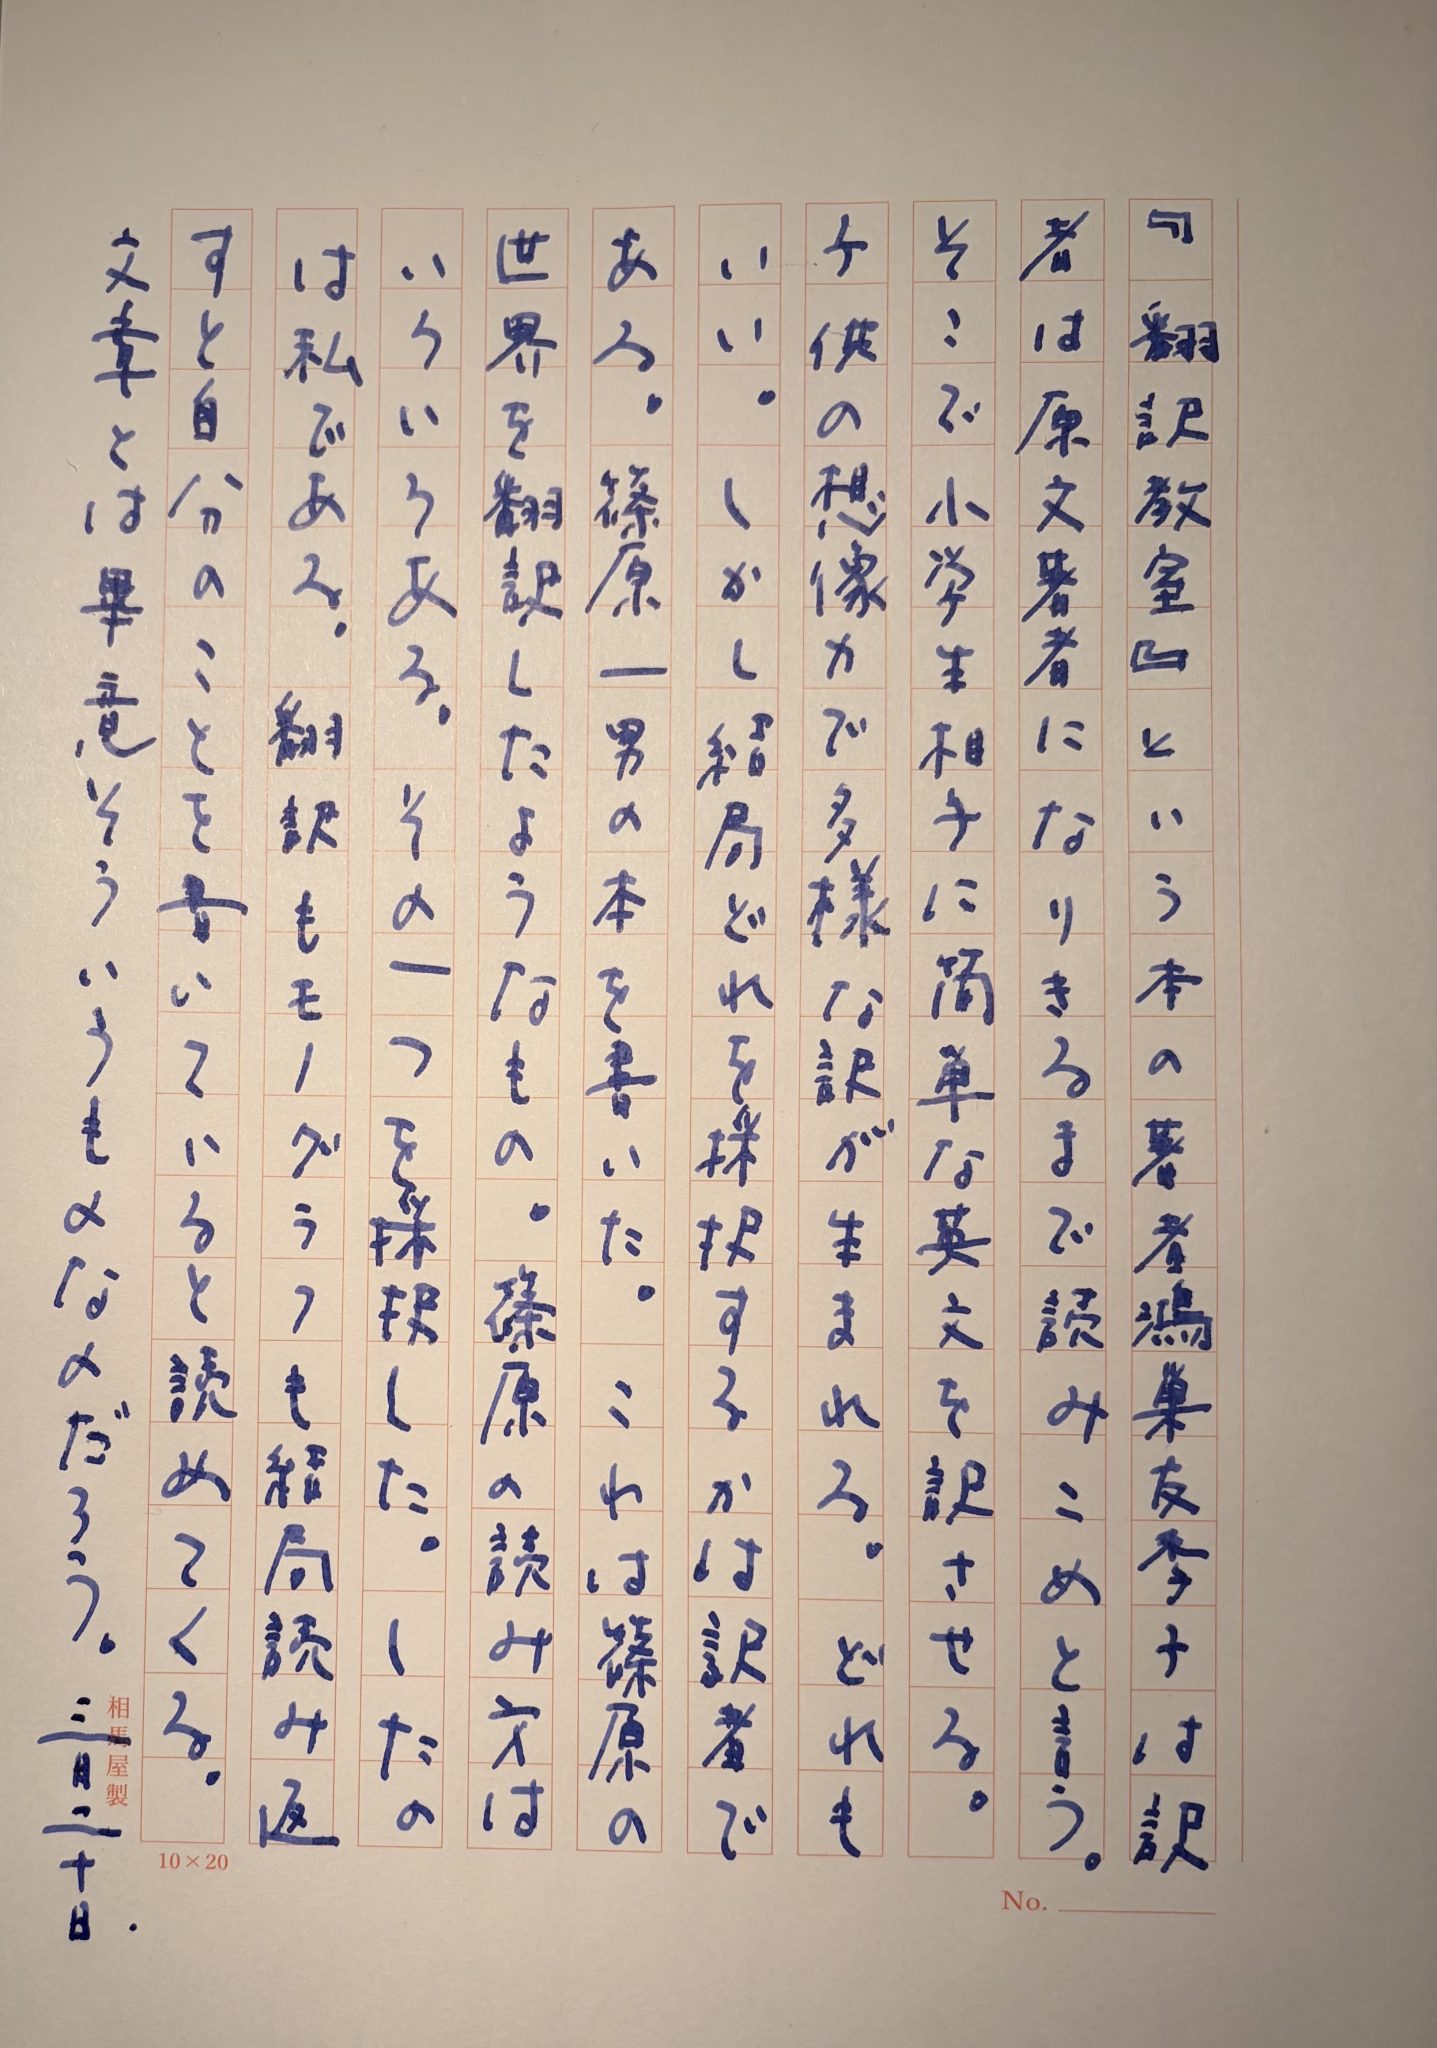 『翻訳教室』という本の著者鴻巣友季子は訳
者は原文著者になりきるまで読みこめと言う。
そこで小学生相手に簡単な英文を訳させる。
子供の想像力で多様な訳が生まれる。どれも
いい。しかし結局どれを採択するかは訳者で
ある。篠原一男の本を書いた。これは篠原の
世界を翻訳したようなもの。篠原の読み方は
いろいろある。その一つを採択した。したの
は私である。翻訳もモノグラフも結局読み返
すと自分のことを書いていると読めてくる。
文章とは畢竟そういうものなのだろう。三月二十日.
相馬屋製
10×20
No.